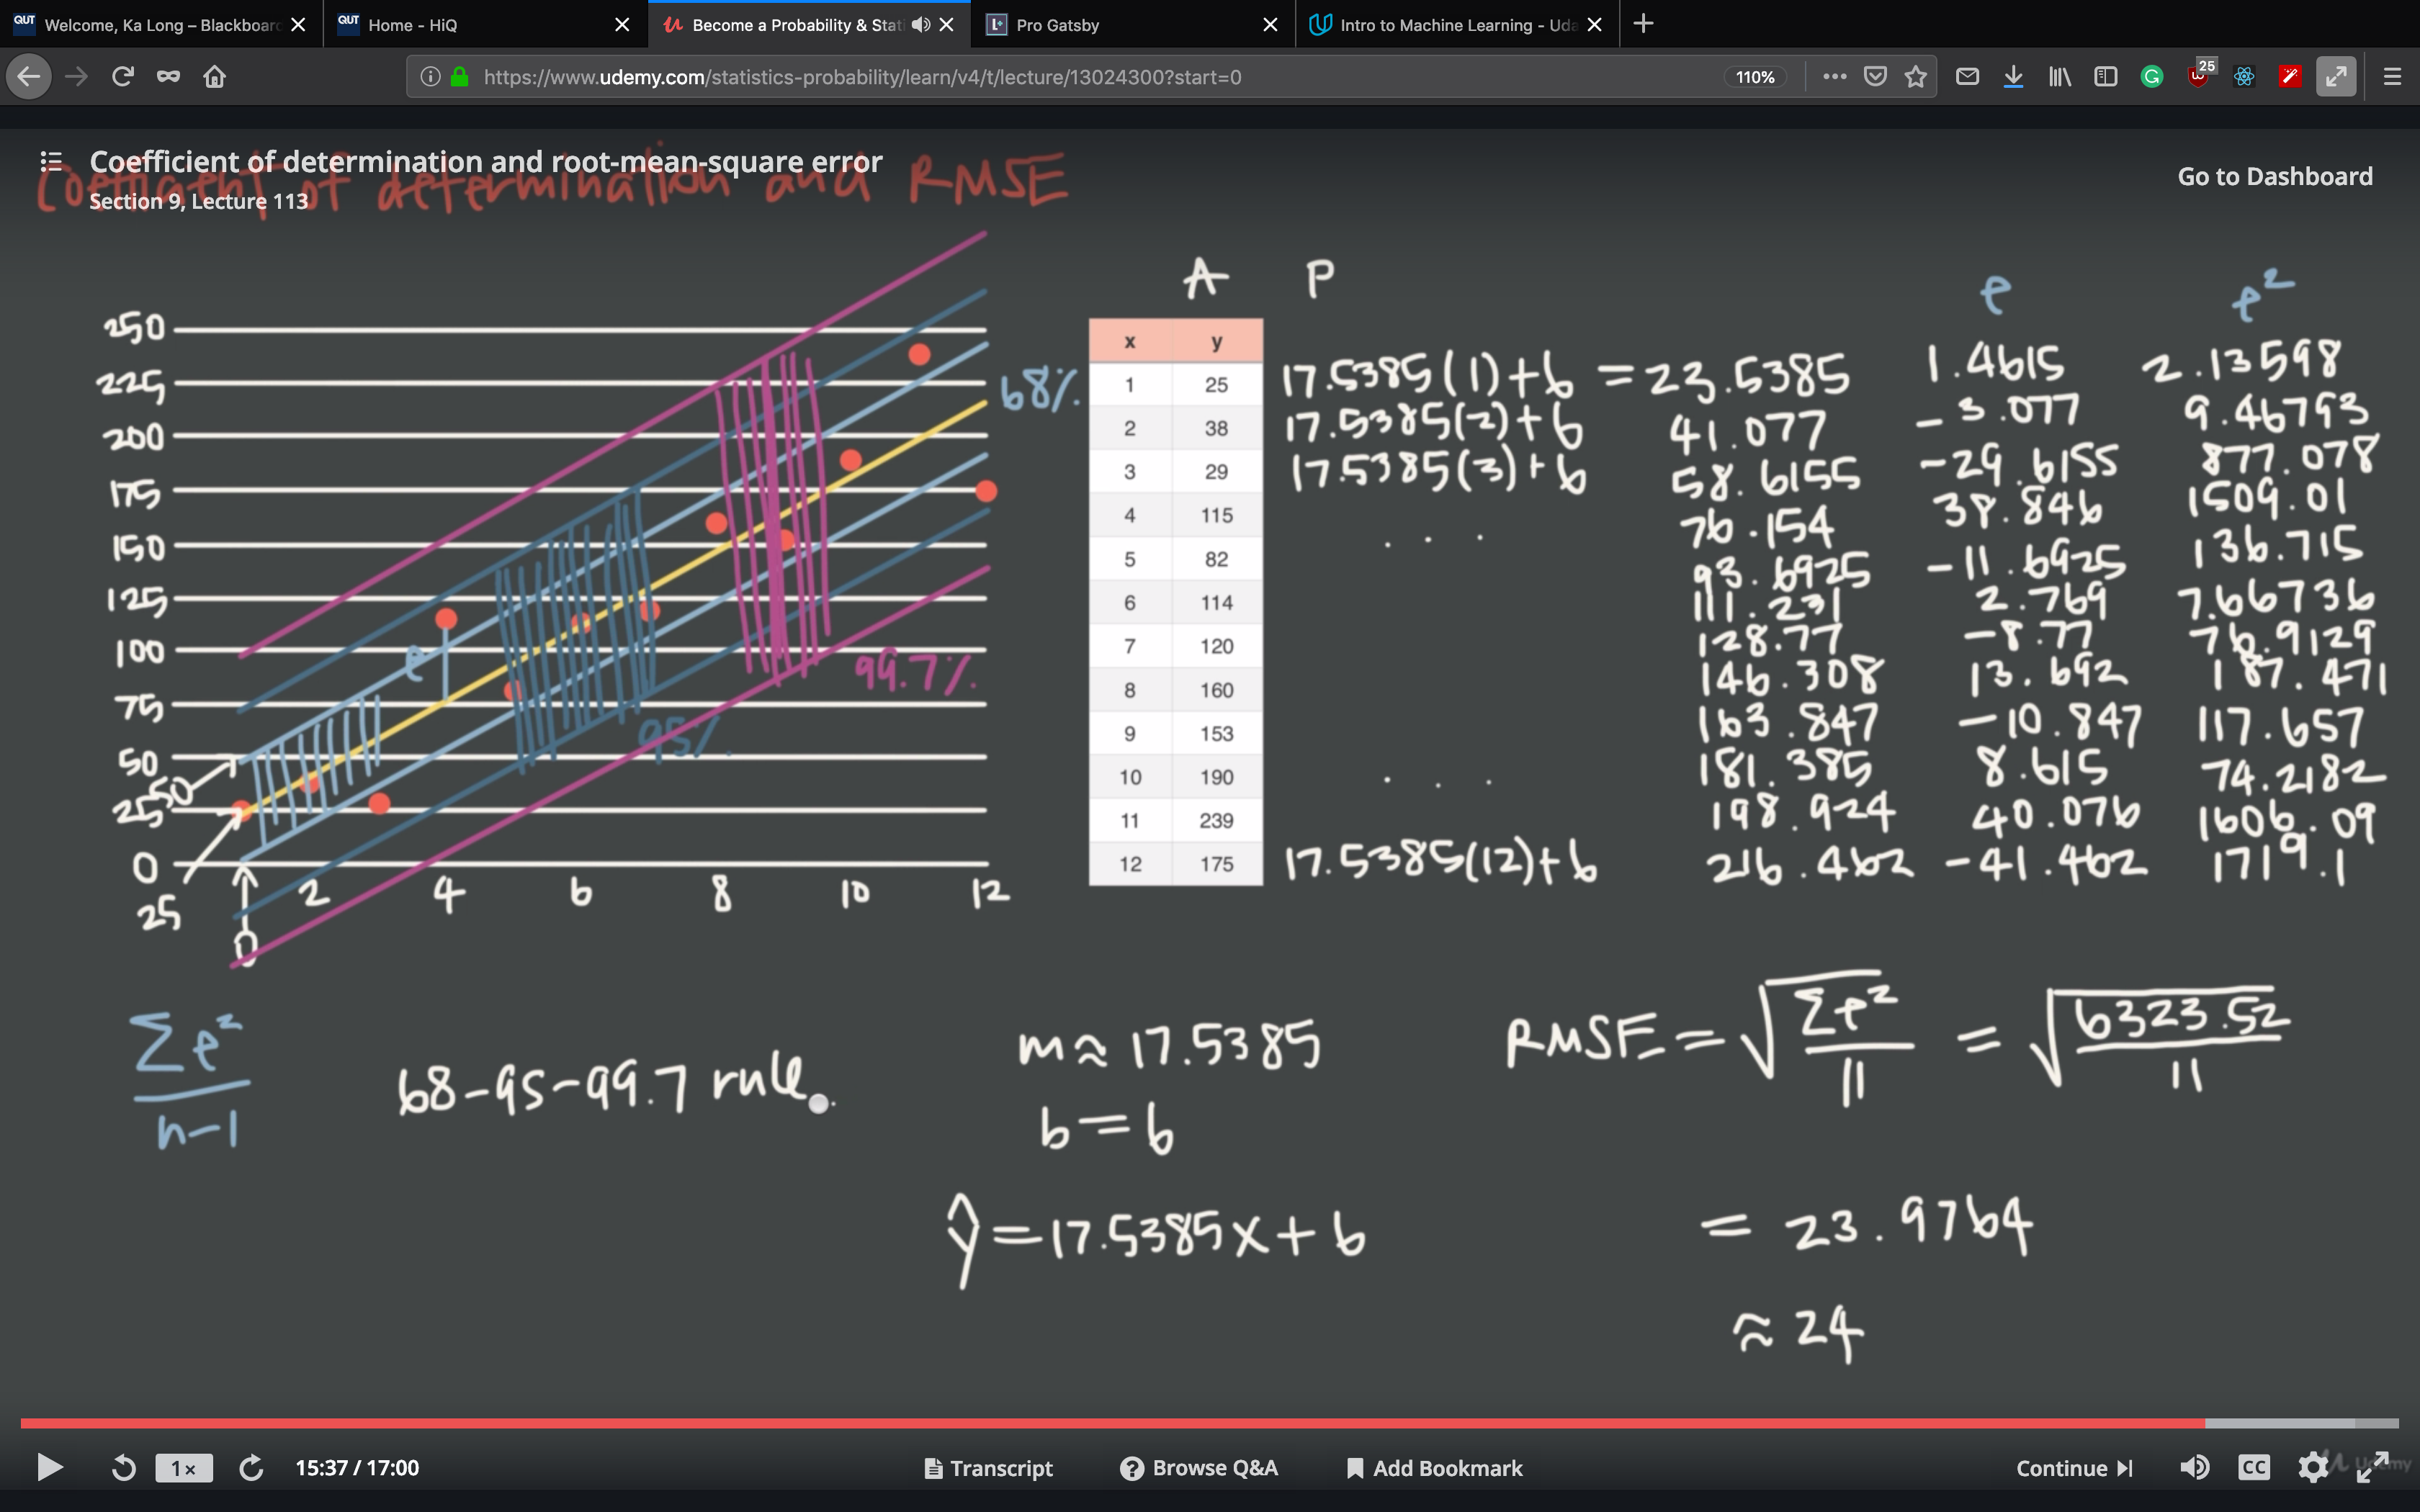 Welcome, Ka Long – Blackboar
Home - HiQ
Become a Probability & Stati
Pro Gatsby
Intro to Machine Learning - Uda
https://www.udemy.com/statistics-probability/learn/v4/t/lecture/13024300?start=0
110%
25
Coefficient of determination and root-mean-square error
Section 9, Lecture 113
Go to Dashboard
Coefficient of determination and RMSE
A P e e²
250
225
200
175
150
125
100
75
50
25
0
50
25
0
2 4 6 8 10 12
e
68%
95%
99.7%
x y
1 25 17.5385(1)+6 =23.5385 1.4615 2.13598
2 38 17.5385(2)+6 41.077 -3.077 9.46793
3 29 17.5385(3)+6 58.6155 -29.6155 877.078
4 115 . . . 76.154 38.846 1509.01
5 82 93.6925 -11.6925 136.715
6 114 111.231 2.769 7.66736
7 120 128.77 -8.77 76.9129
8 160 146.308 13.692 187.471
9 153 163.847 -10.847 117.657
10 190 . . . 181.385 8.615 74.2182
11 239 198.924 40.076 1606.09
12 175 17.5385(12)+6 216.462 -41.462 1719.1
Σe²
n-1
68-95-99.7 rule.
m≈17.5385
b=6
ŷ=17.5385x+6
RMSE=√Σe²/11 = √6323.52/11
= 23.9764
≈ 24
1×
15:37 / 17:00
Transcript
Browse Q&A
Add Bookmark
Continue
CC
Udemy